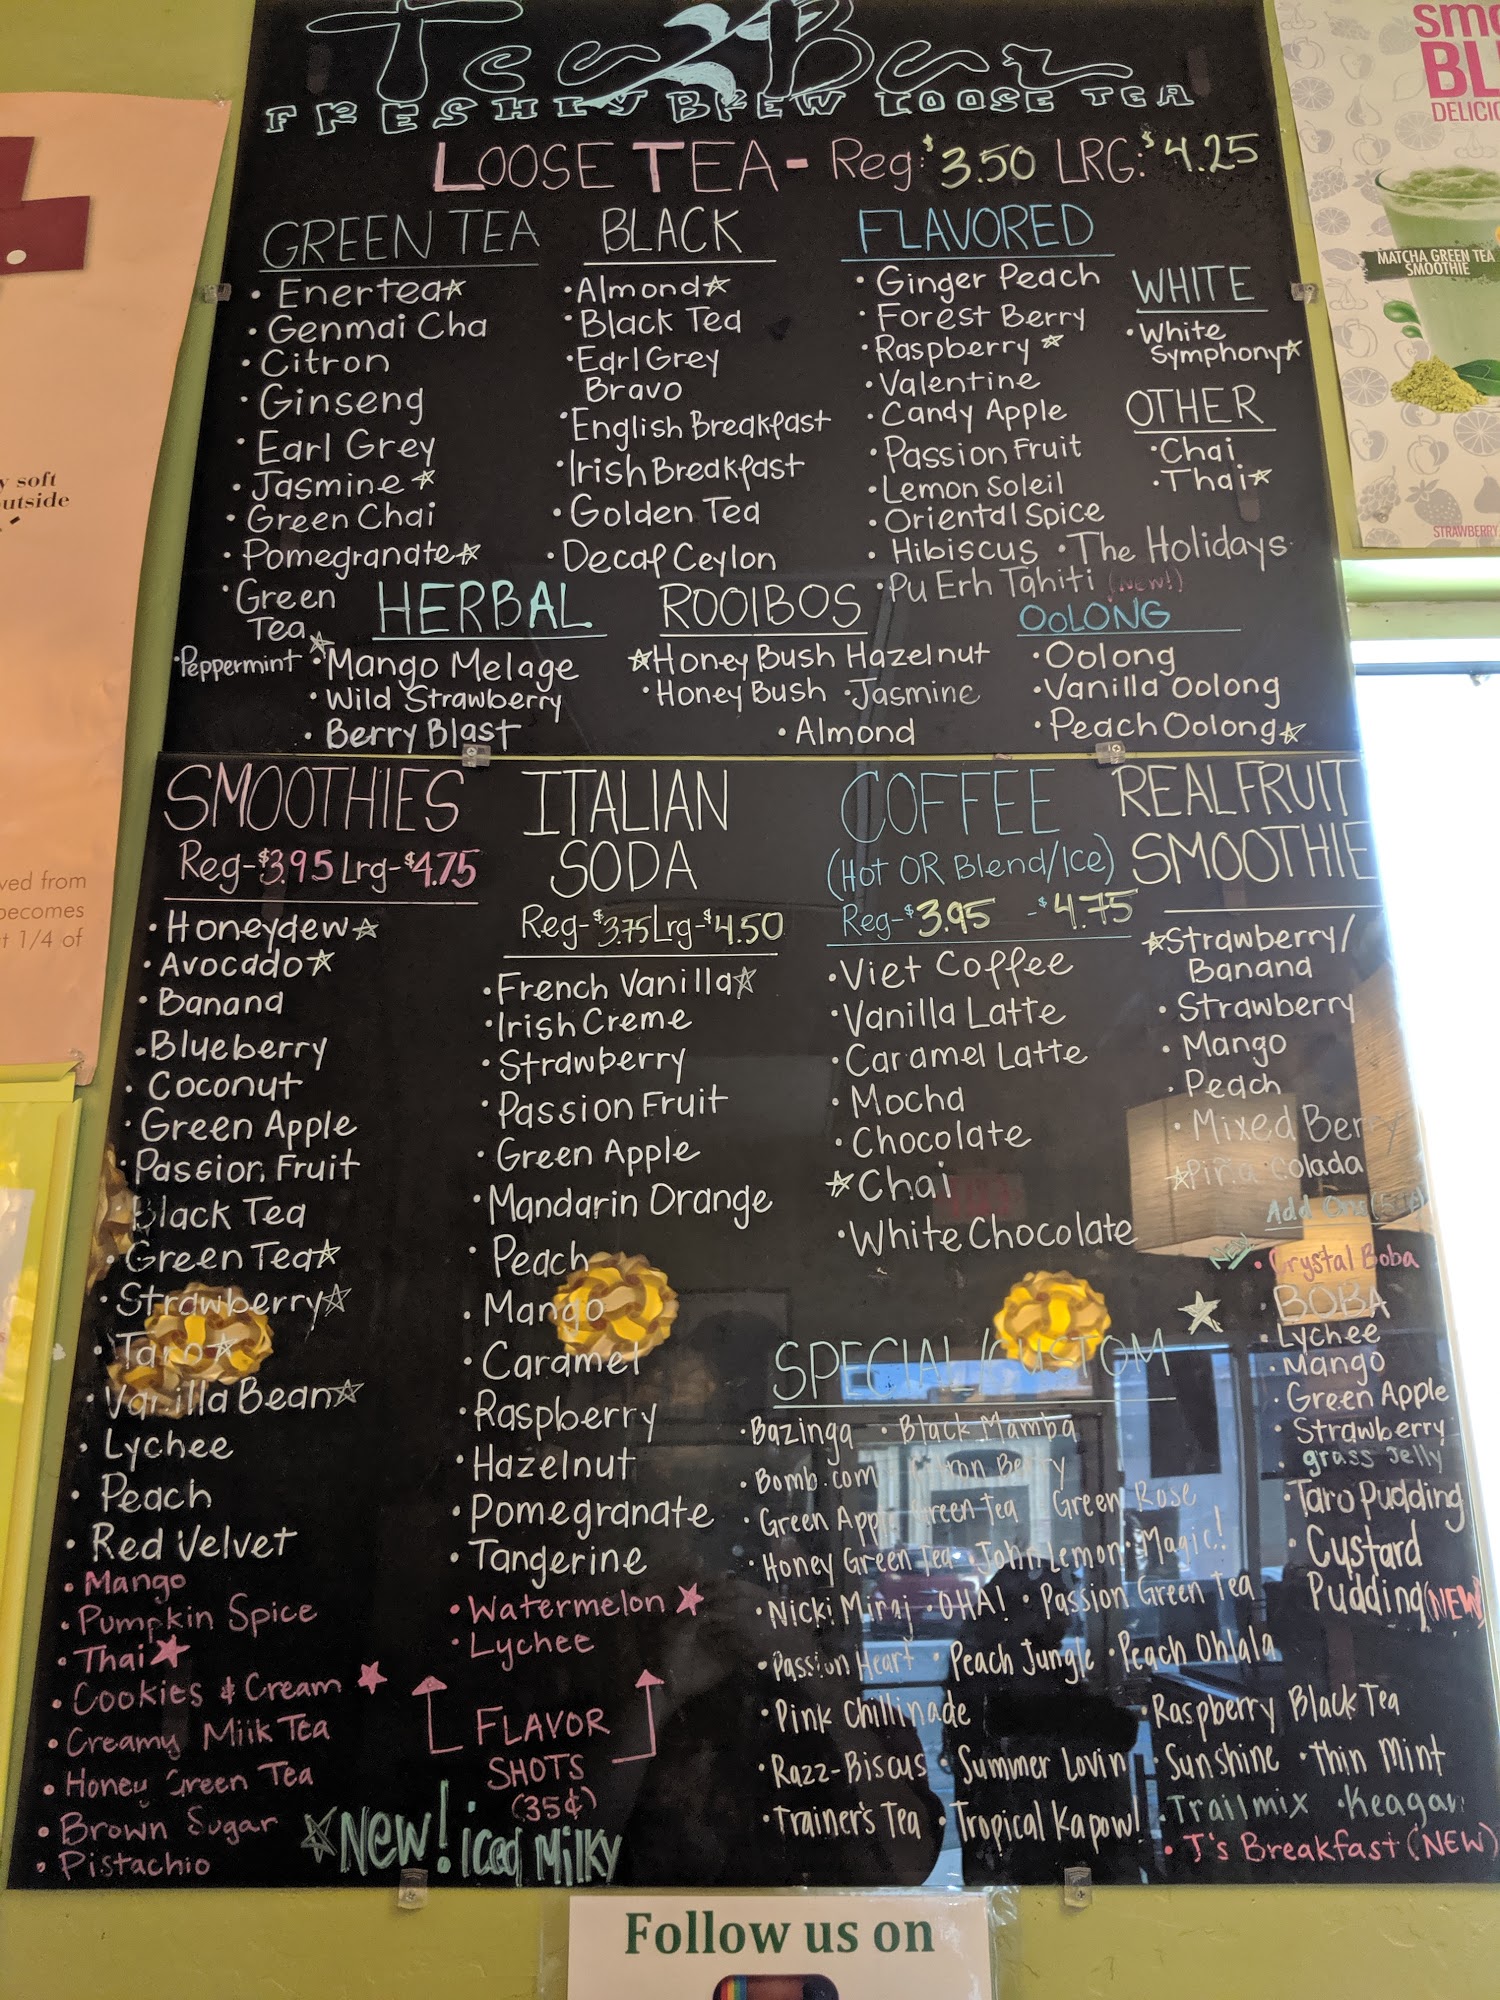 Tea Bar
FRESHLY BREW LOOSE TEA
LOOSE TEA- Reg:$3.50 LRG:$4.25
GREEN TEA
• Enertea☆
• Genmai Cha
• Citron
• Ginseng
• Earl Grey
• Jasmine☆
• Green Chai
• Pomegranate☆
• Green
Tea☆
BLACK
• Almond☆
• Black Tea
• Earl Grey
Bravo
• English Breakfast
• Irish Breakfast
• Golden Tea
• Decaf Ceylon
FLAVORED
• Ginger Peach
• Forest Berry
• Raspberry☆
• Valentine
• Candy Apple
• Passion Fruit
• Lemon Soleil
• Oriental Spice
• Hibiscus • The Holidays
• Pu Erh Tahiti (New!)
WHITE
• White
Symphony☆
OTHER
• Chai
• Thai☆
HERBAL
• Peppermint • Mango Melage
• Wild Strawberry
• Berry Blast
ROOIBOS
☆Honey Bush Hazelnut
• Honey Bush • Jasmine
• Almond
OOLONG
• Oolong
• Vanilla Oolong
• Peach Oolong☆
SMOOTHIES
Reg-$3.95 Lrg-$4.75
• Honeydew☆
• Avocado☆
• Banana
• Blueberry
• Coconut
• Green Apple
• Passion Fruit
Black Tea
• Green Tea☆
• Strawberry☆
• Taro☆
• Vanilla Bean☆
• Lychee
• Peach
• Red Velvet
• Mango
• Pumpkin Spice
• Thai★
• Cookies & Cream★
• Creamy Milk Tea
• Honey Green Tea
• Brown Sugar
• Pistachio
ITALIAN
SODA
Reg-$3.75 Lrg-$4.50
• French Vanilla☆
• Irish Creme
• Strawberry
• Passion Fruit
• Green Apple
• Mandarin Orange
• Peach
• Mango
• Caramel
• Raspberry
• Hazelnut
• Pomegranate
• Tangerine
• Watermelon★
• Lychee
FLAVOR
SHOTS
(35¢)
☆New! iced Milky
COFFEE
(Hot OR Blend/Ice)
Reg-$3.95 -$4.75
• Viet Coffee
• Vanilla Latte
• Caramel Latte
• Mocha
• Chocolate
☆Chai
• White Chocolate
REAL FRUIT
SMOOTHIE
☆Strawberry/
Banana
• Strawberry
• Mango
• Peach
• Mixed Berry
☆Piña Colada
Add Ons
New • Crystal Boba
• BOBA
• Lychee
• Mango
• Green Apple
• Strawberry
• grass Jelly
• Taro Pudding
• Custard
Pudding (NEW)
SPECIAL/CUSTOM ★
• Bazinga • Black Mamba
• Bomb.com • Citron Berry
• Green Apple Green Tea • Green Rose
• Honey Green Tea • John Lemon • Magic!
• Nicki Minaj • OHA! • Passion Green Tea
• Passion Heart • Peach Jungle • Peach Ohlala
• Pink Chillinade • Raspberry Black Tea
• Razz-Biscus • Summer Lovin • Sunshine • Thin Mint
• Trainer's Tea • Tropical Kapow! • Trailmix • Keagan
• J's Breakfast (NEW)
Follow us on
y soft
outside
ved from
becomes
t 1/4 of
smo
BL
DELICIO
MATCHA GREEN TEA
SMOOTHIE
STRAWBERRY